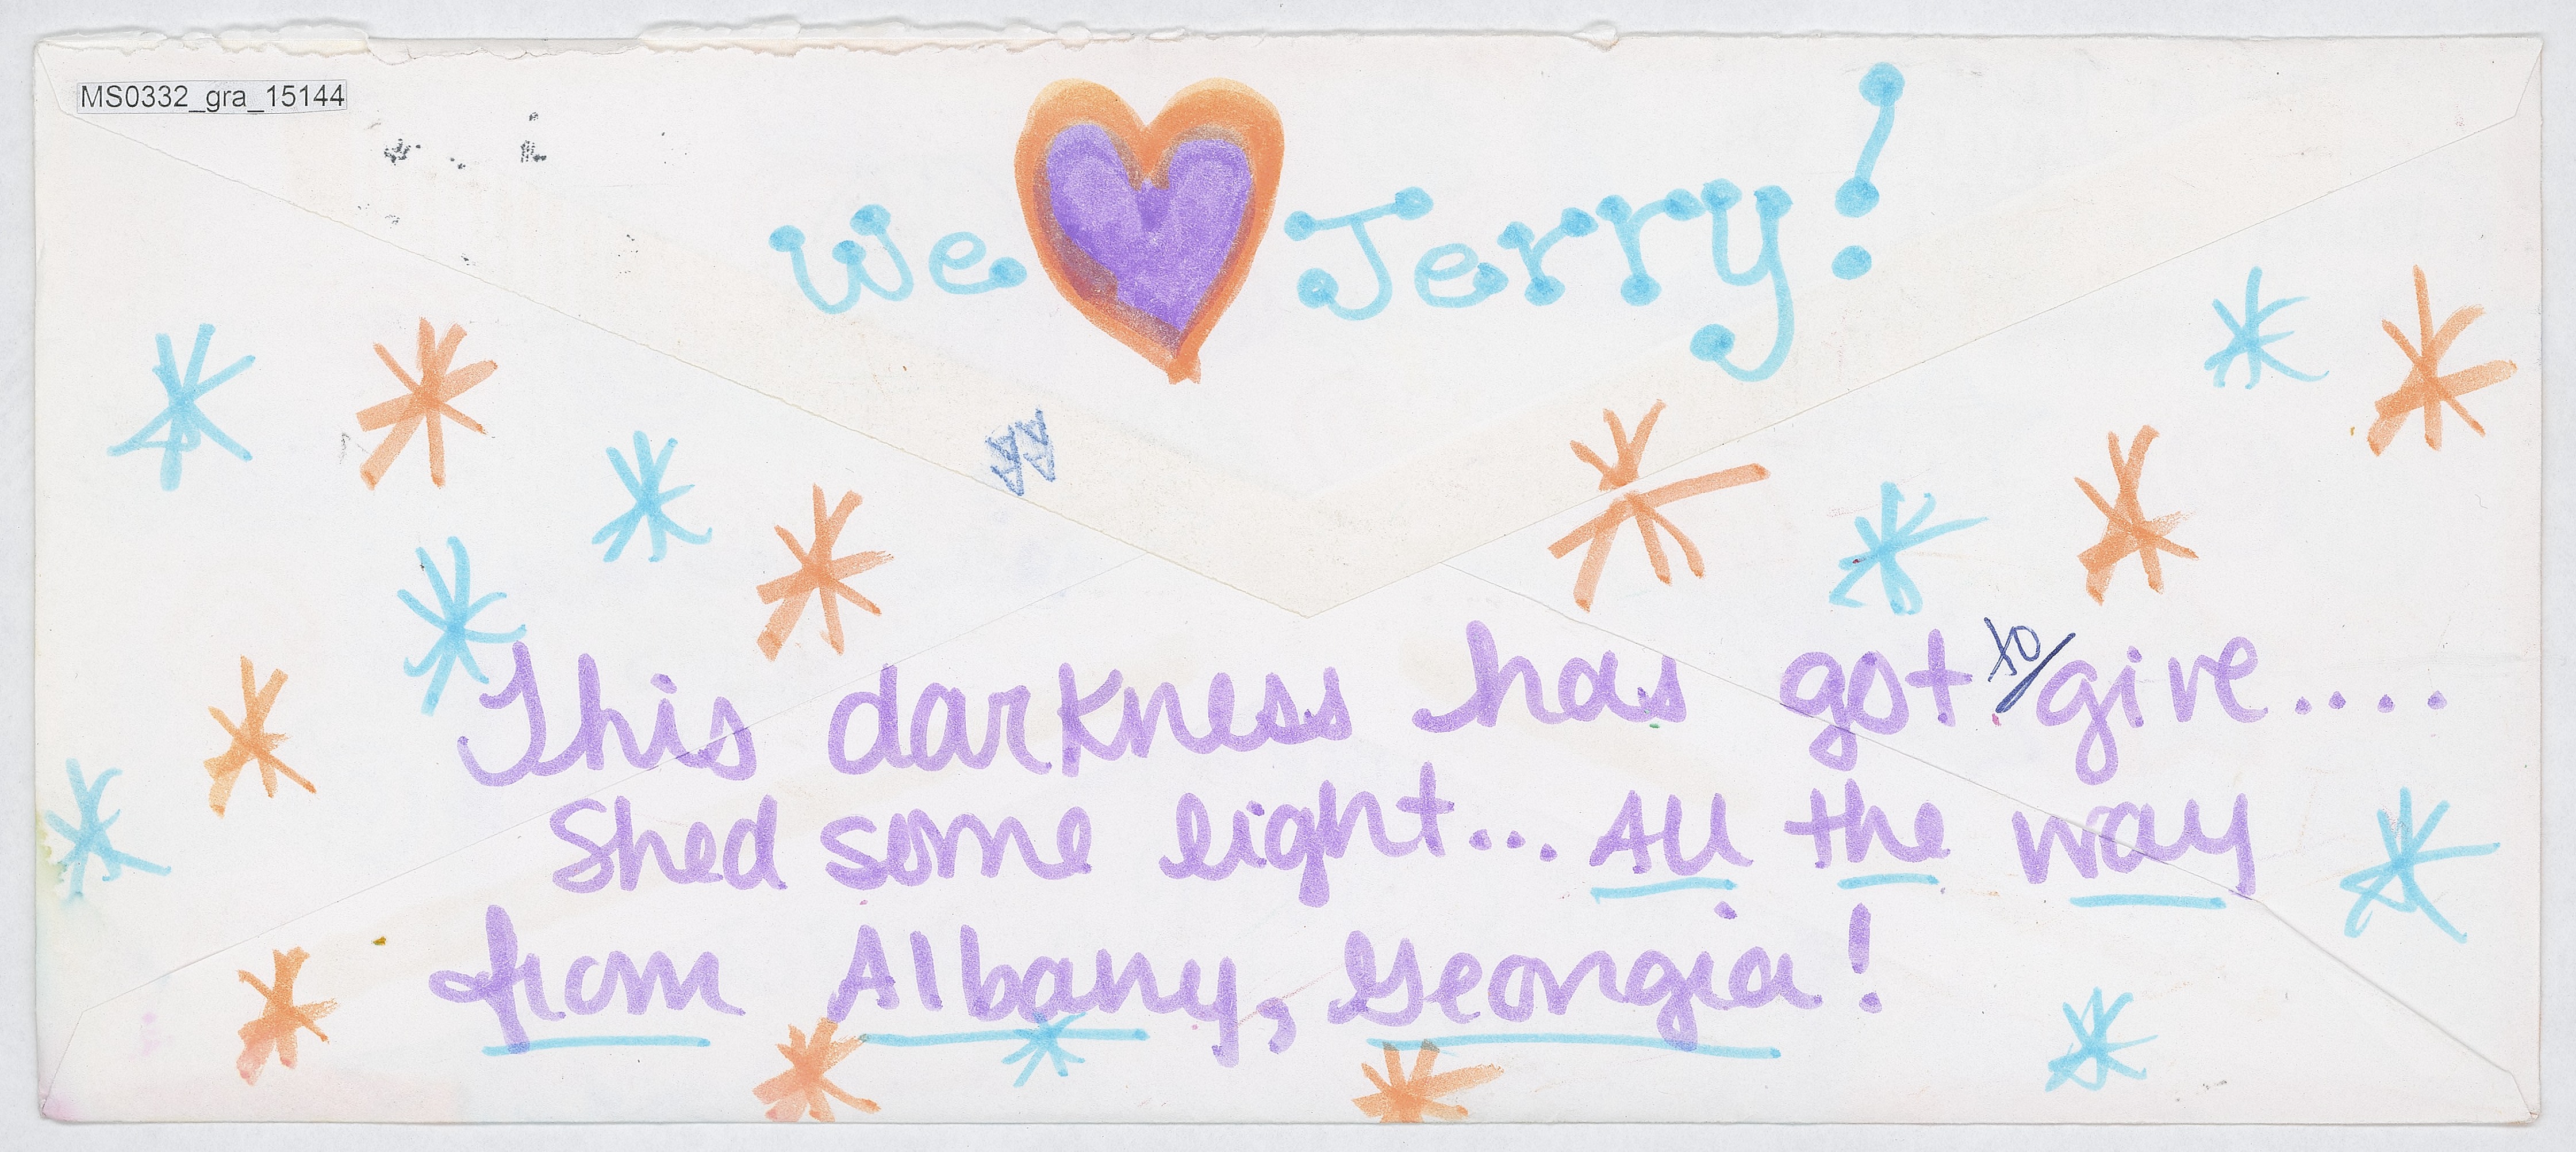 MS0332_gra_15144
We ♥ Jerry!
This darkness has got to give....
Shed some light... All the way
from Albany, Georgia!